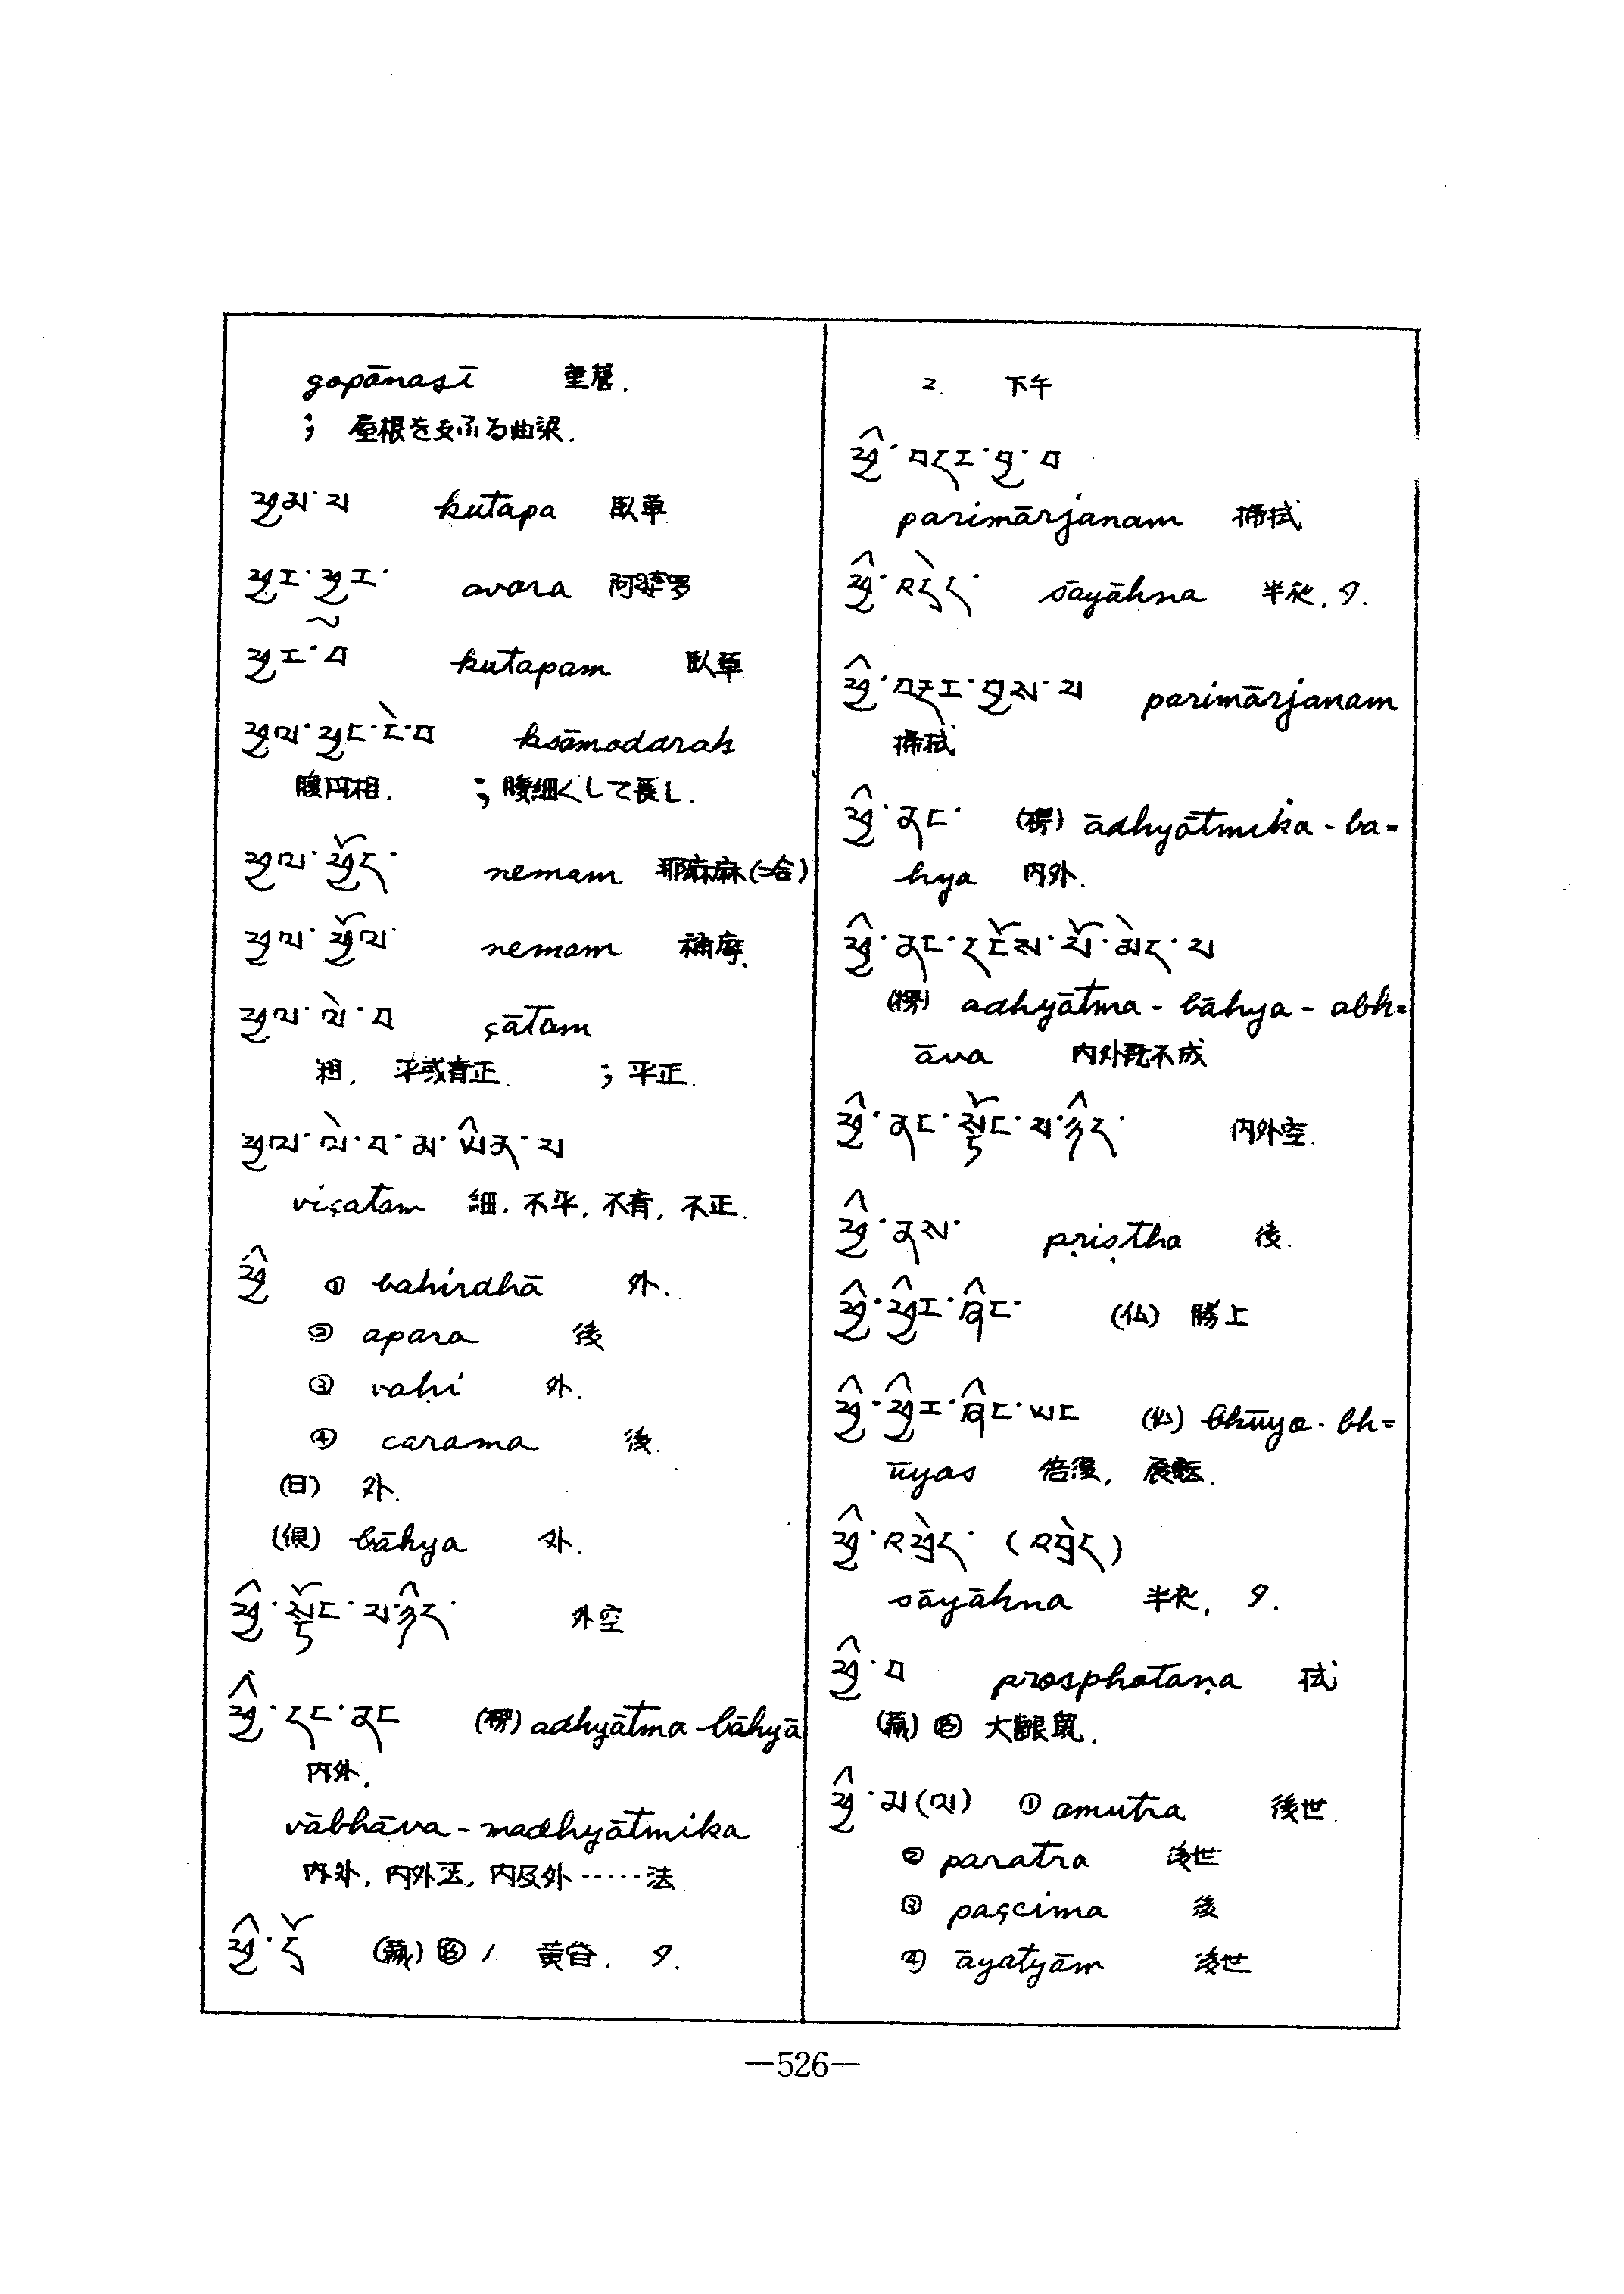 gopānasī
； 屋根を支ふる曲梁.
ཕྱམ་པ kutapa 臥草
ཕྱར་ཕྱར་ avara 阿婆罗
ཕྱར་བ kutapam 臥草
ཕྱལ་ཕྱང་ངེ་བ ksāmodarah
腹円相. ；腹細くして長し.
ཕྱལ་ཕྱོད་ nemam 耶麻麻(二合)
ཕྱལ་ཕྱོལ་ nemam 補摩.
ཕྱལ་ལེ་བ çātam
粗. 平或育正. ；平正.
ཕྱལ་ལེ་བ་མ་ཡིན་པ
viçatam 細. 不平, 不育, 不正.
ཕྱི ① bahirdhā 外.
② apara 後
③ vaḥi 外.
④ carama 後.
(日) 外.
(倶) bāhya 外.
ཕྱི་སྟོང་པ་ཉིད་ 外空
ཕྱི་དང་ནང (楞) adhyātma-bāhyā
内外.
vābhāva-madhyātmika
内外, 内外法, 内及外……法
ཕྱི་དྲོ (蔵) 1. 黄昏. 夕.
2. 下午
ཕྱི་བདར་བྱ་བ
parimārjanam 掃拭
ཕྱི་འདྲེད་ sāyāhna 半夜. 夕.
ཕྱི་བདར་བྱས་པ parimārjanam
掃拭
ཕྱི་ནང་ (楞) ādhyātmika-ba=
hya 内外.
ཕྱི་ནང་དངོས་པོ་མེད་པ
(楞) adhyātma-bāhya-abh=
āva 内外既不成
ཕྱི་ནང་སྟོང་པ་ཉིད་ 内外空.
ཕྱི་ནས་ pṛiṣṭha 後.
ཕྱི་ཕྱིར་ཞིང་ (仏) 勝上
ཕྱི་ཕྱིར་ཞིང་ཡང (仏) bhūya-bh=
ūyas 倍復, 展転.
ཕྱི་འཕྲེད་ (འབྲེད)
sāyāhna 半夜, 夕.
ཕྱི་བ prosphotaṇa 拭
(蔵) 大齦鼠.
ཕྱི་མ(ལ) ① amutra 後世.
② paratra 後世
③ paçcima 後
④ āyatyām 後世
—526—